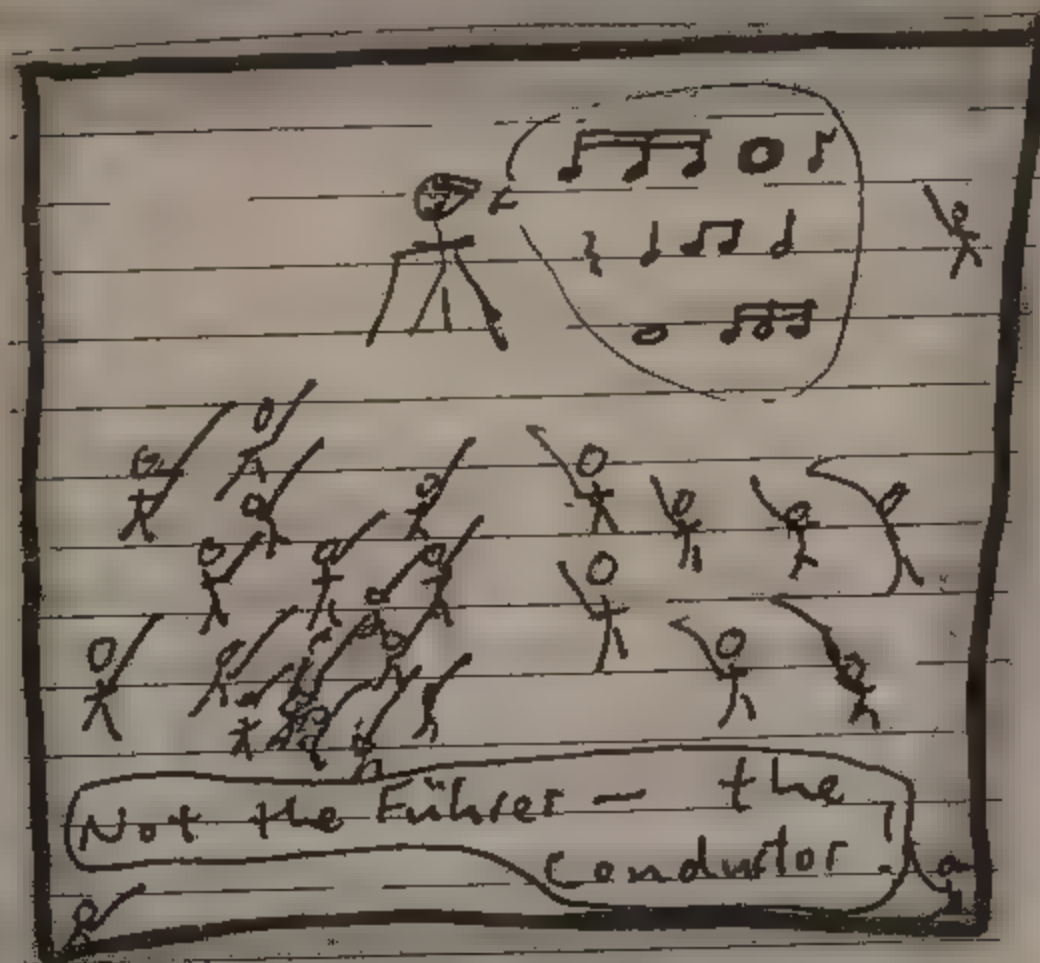 Not the Führer – the
conductor!